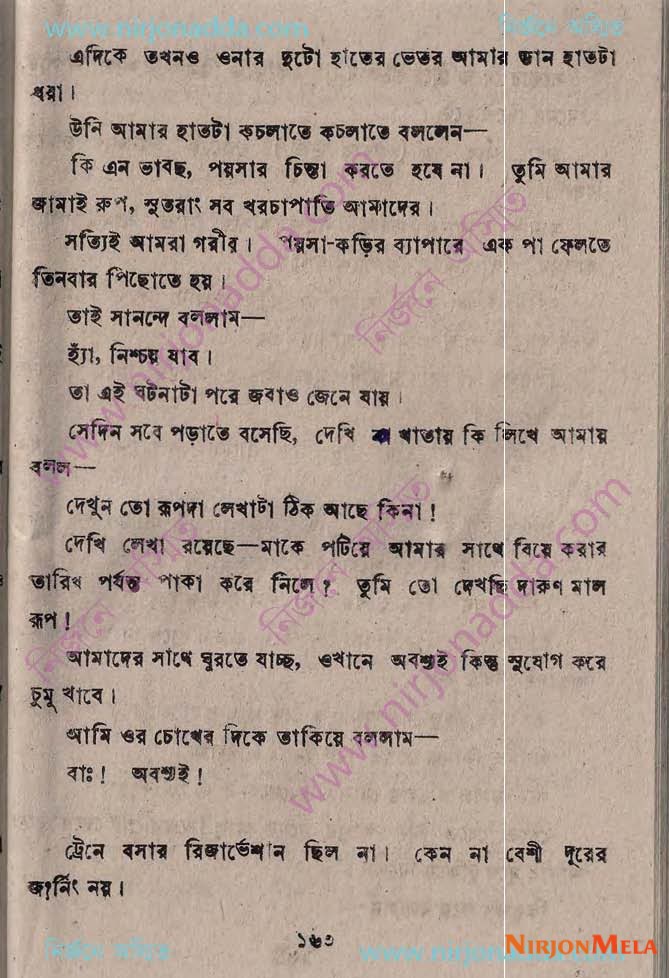 www.nirjonadda.com নির্জনে অস্মিতে
এদিকে তখনও ওনার দুটো হাতের ভেতর আমার ডান হাতটা
ধরা।
উনি আমার হাতটা কচলাতে কচলাতে বললেন—
কি এন ভাবছ, পয়সার চিন্তা করতে হবে না। তুমি আমার
জামাই রুপ, সুতরাং সব খরচাপাতি আমাদের।
সত্যিই আমরা গরীব। পয়সা-কড়ির ব্যাপারে এক পা ফেলতে
তিনবার পিছোতে হয়।
তাই সানন্দে বললাম—
হ্যাঁ, নিশ্চয় যাব।
তা এই ঘটনাটা পরে জবাও জেনে যায়।
সেদিন সবে পড়াতে বসেছি, দেখি খাতায় কি লিখে আমায়
বলল—
দেখুন তো রূপদা লেখাটা ঠিক আছে কিনা!
দেখি লেখা রয়েছে—মাকে পটিয়ে আমার সাথে বিয়ে করার
তারিখ পর্যন্ত পাকা করে নিলে? তুমি তো দেখছি দারুণ মাল
রূপ!
আমাদের সাথে ঘুরতে যাচ্ছ, ওখানে অবশ্যই কিন্তু সুযোগ করে
চুমু খাবে।
আমি ওর চোখের দিকে তাকিয়ে বললাম—
বাঃ! অবশ্যই!
ট্রেনে বসার রিজার্ভেশান ছিল না। কেন না বেশী দূরের
জার্নিং নয়।
১৬৩
www.nirjonadda.com
NIRJONMELA